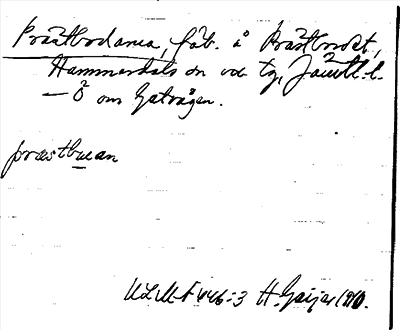 Prästbodarna, fäb. å Prästbordet,
Hammerdals sn och tg, Jämtl. l.
— Ö om Gåxvågen.
præstbuan
ULMA 446:3 H. Geijer 1910.